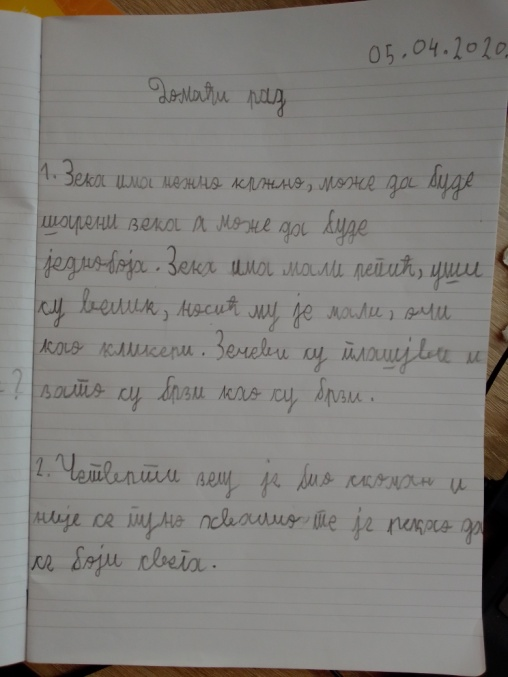 05.04.2020.
Домаћи рад
1. Зека има нежно крзно, може да буде
шарени зека а може да буде
једнобоја. Зека има мали репић, уши
су велик, носић му је мали, очи
као кликери. Зечеви су плашљиви и
? зато су брзи као су брзи.
2. Четверти зец је био скоман и
није се пуно хвалио те је рекао да
се боји света.